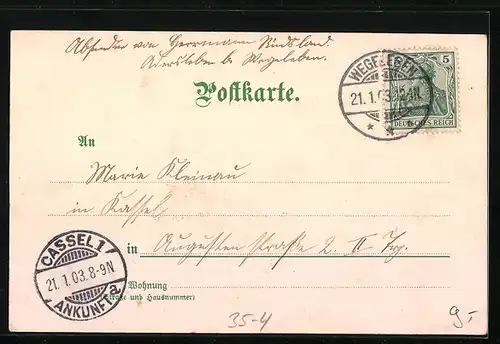 Absender von Herrmann
Adersleben b. Wegeleben.
Postkarte.
WEGELEBEN
21.1.03.
5
DEUTSCHES REICH
An
Marie Kleinau
in Kassel
in Augusten straße 2. II Trp.
CASSEL 1
21.1.03.8-9N
ANKUNFT a
Wohnung
(Straße und Hausnummer)
35-4
9,-